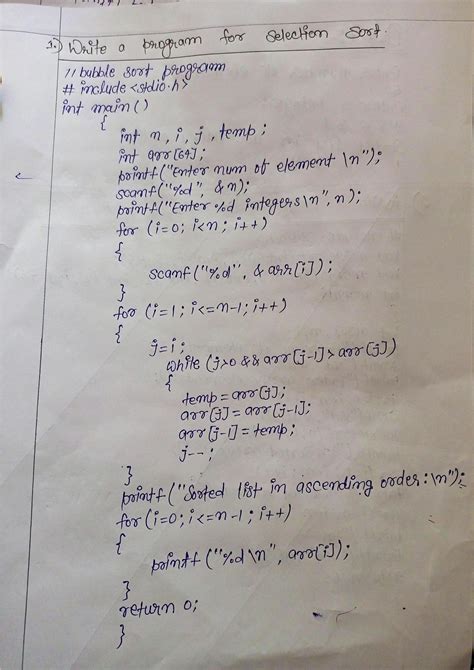 1.) Write a program for selection sort.
// bubble sort program
# include <stdio.h>
int main()
{
int n, i, j, temp;
int arr[64];
printf("Enter num of element \n");
scanf("%d", &n);
printf("Enter %d integers\n", n);
for (i=0; i<n; i++)
{
scanf("%d", &arr[i]);
}
for (i=1; i<=n-1; i++)
{
j=i;
while (j>0 && arr[j-1]>arr[j])
{
temp=arr[j];
arr[j]=arr[j-1];
arr[j-1]=temp;
j--;
}
printf("Sorted list in ascending order:\n");
for(i=0; i<=n-1; i++)
{
printf("%d\n", arr[i]);
}
return 0;
}